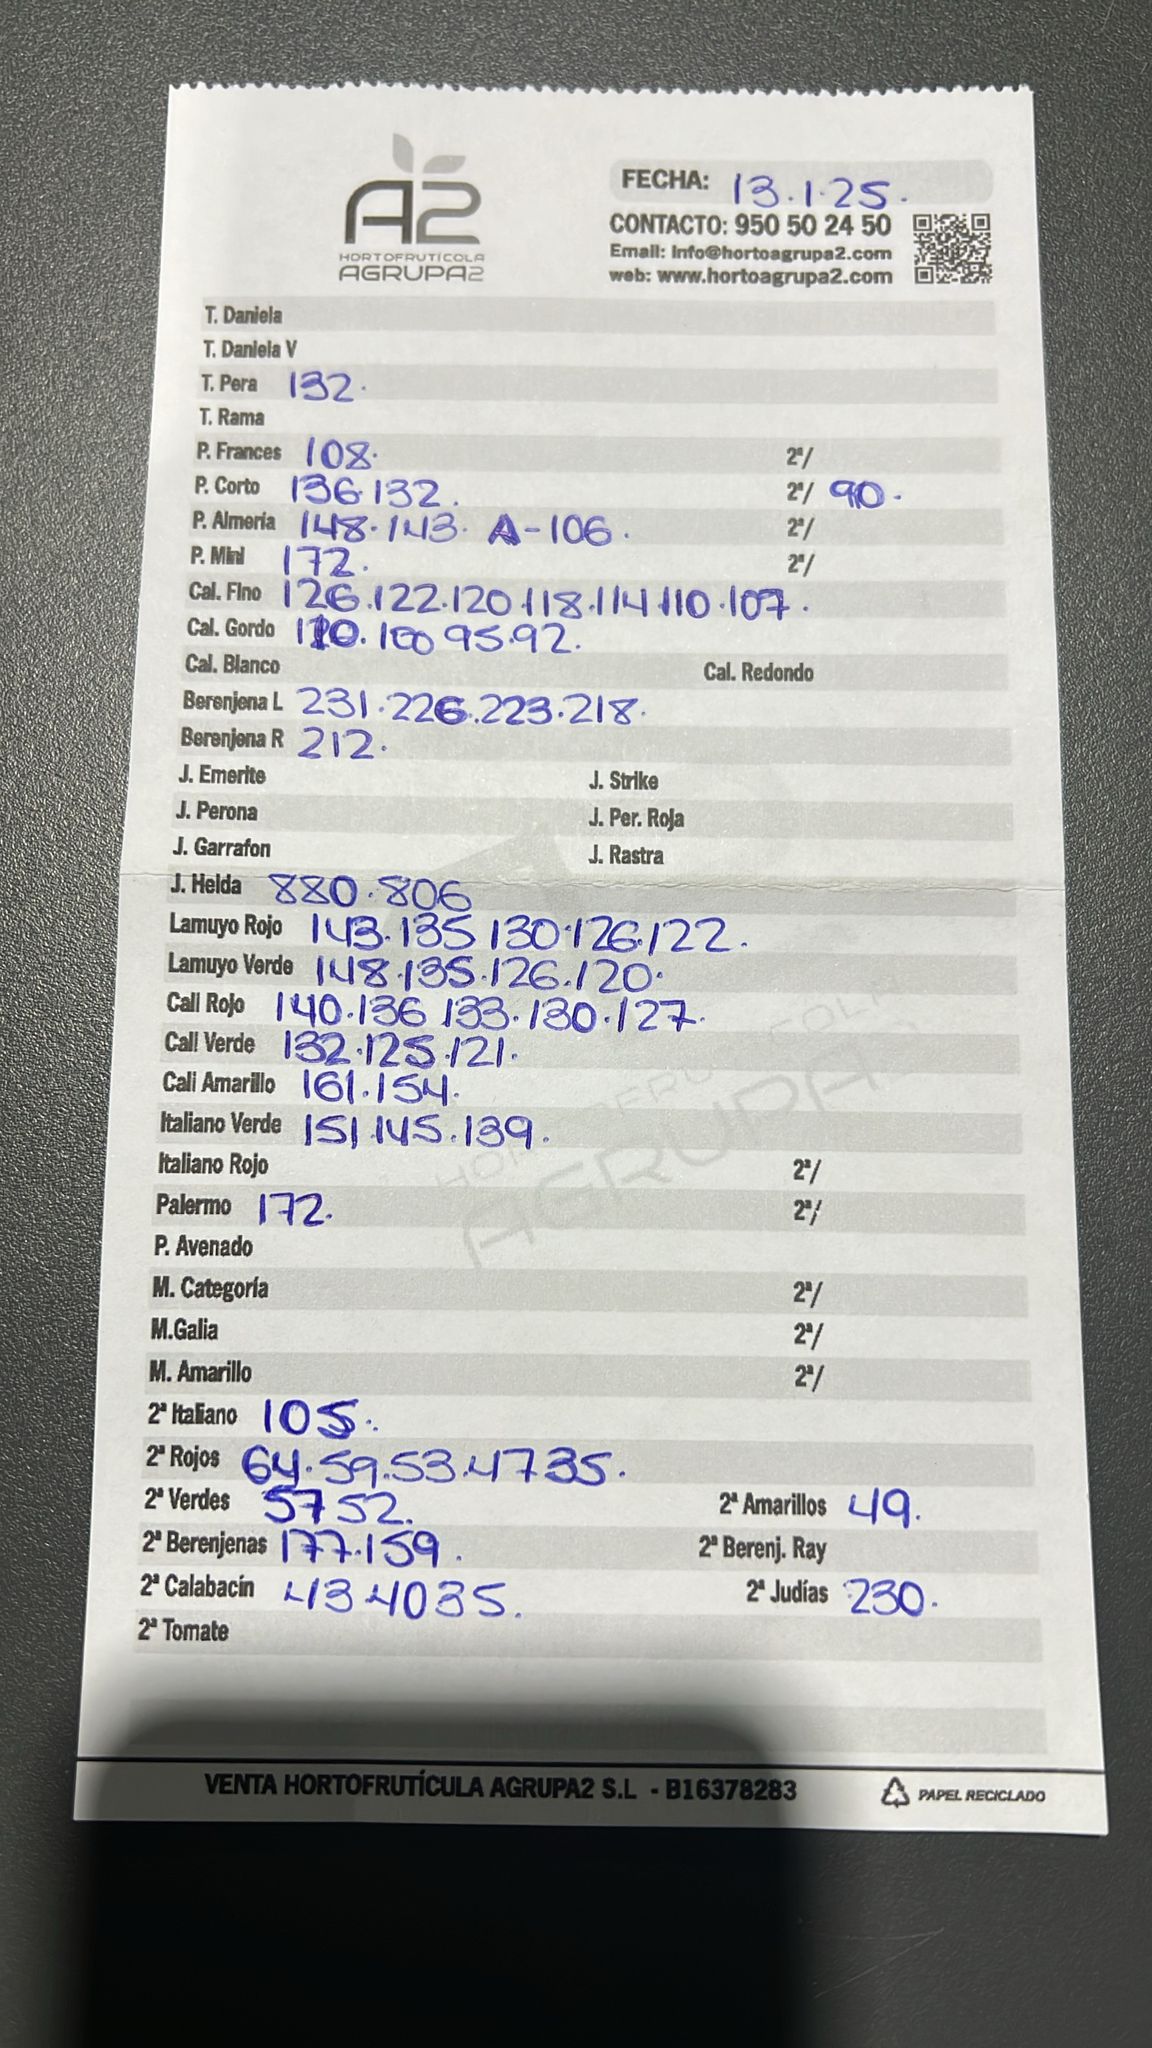 A2
HORTOFRUTÍCOLA
AGRUPA2
FECHA: 13.1.25.
CONTACTO: 950 50 24 50
Email: Info@hortoagrupa2.com
web: www.hortoagrupa2.com
T. Daniela
T. Daniela V
T. Pera 132.
T. Rama
P. Frances 108. 2ª/
P. Corto 136.132. 2ª/ 90.
P. Almería 148.143. A-106. 2ª/
P. Mini 172. 2ª/
Cal. Fino 126.122.120.118.114.110.107.
Cal. Gordo 110.100 95.92.
Cal. Blanco Cal. Redondo
Berenjena L 231.226.223.218.
Berenjena R 212.
J. Emerite J. Strike
J. Perona J. Per. Roja
J. Garrafon J. Rastra
J. Helda 880.806
Lamuyo Rojo 143.135 130.126.122.
Lamuyo Verde 148.135.126.120.
Cali Rojo 140.136 133.130.127.
Cali Verde 132.125.121.
Cali Amarillo 161.154.
Italiano Verde 151.145.139.
Italiano Rojo 2ª/
Palermo 172. 2ª/
P. Avenado
M. Categoría 2ª/
M.Galia 2ª/
M. Amarillo 2ª/
2ª Italiano 105.
2ª Rojos 64.59.53.47 35.
2ª Verdes 57 52. 2ª Amarillos 49.
2ª Berenjenas 177.159. 2ª Berenj. Ray
2ª Calabacín 43 40 35. 2ª Judías 230.
2ª Tomate
VENTA HORTOFRUTÍCULA AGRUPA2 S.L - B16378283 PAPEL RECICLADO